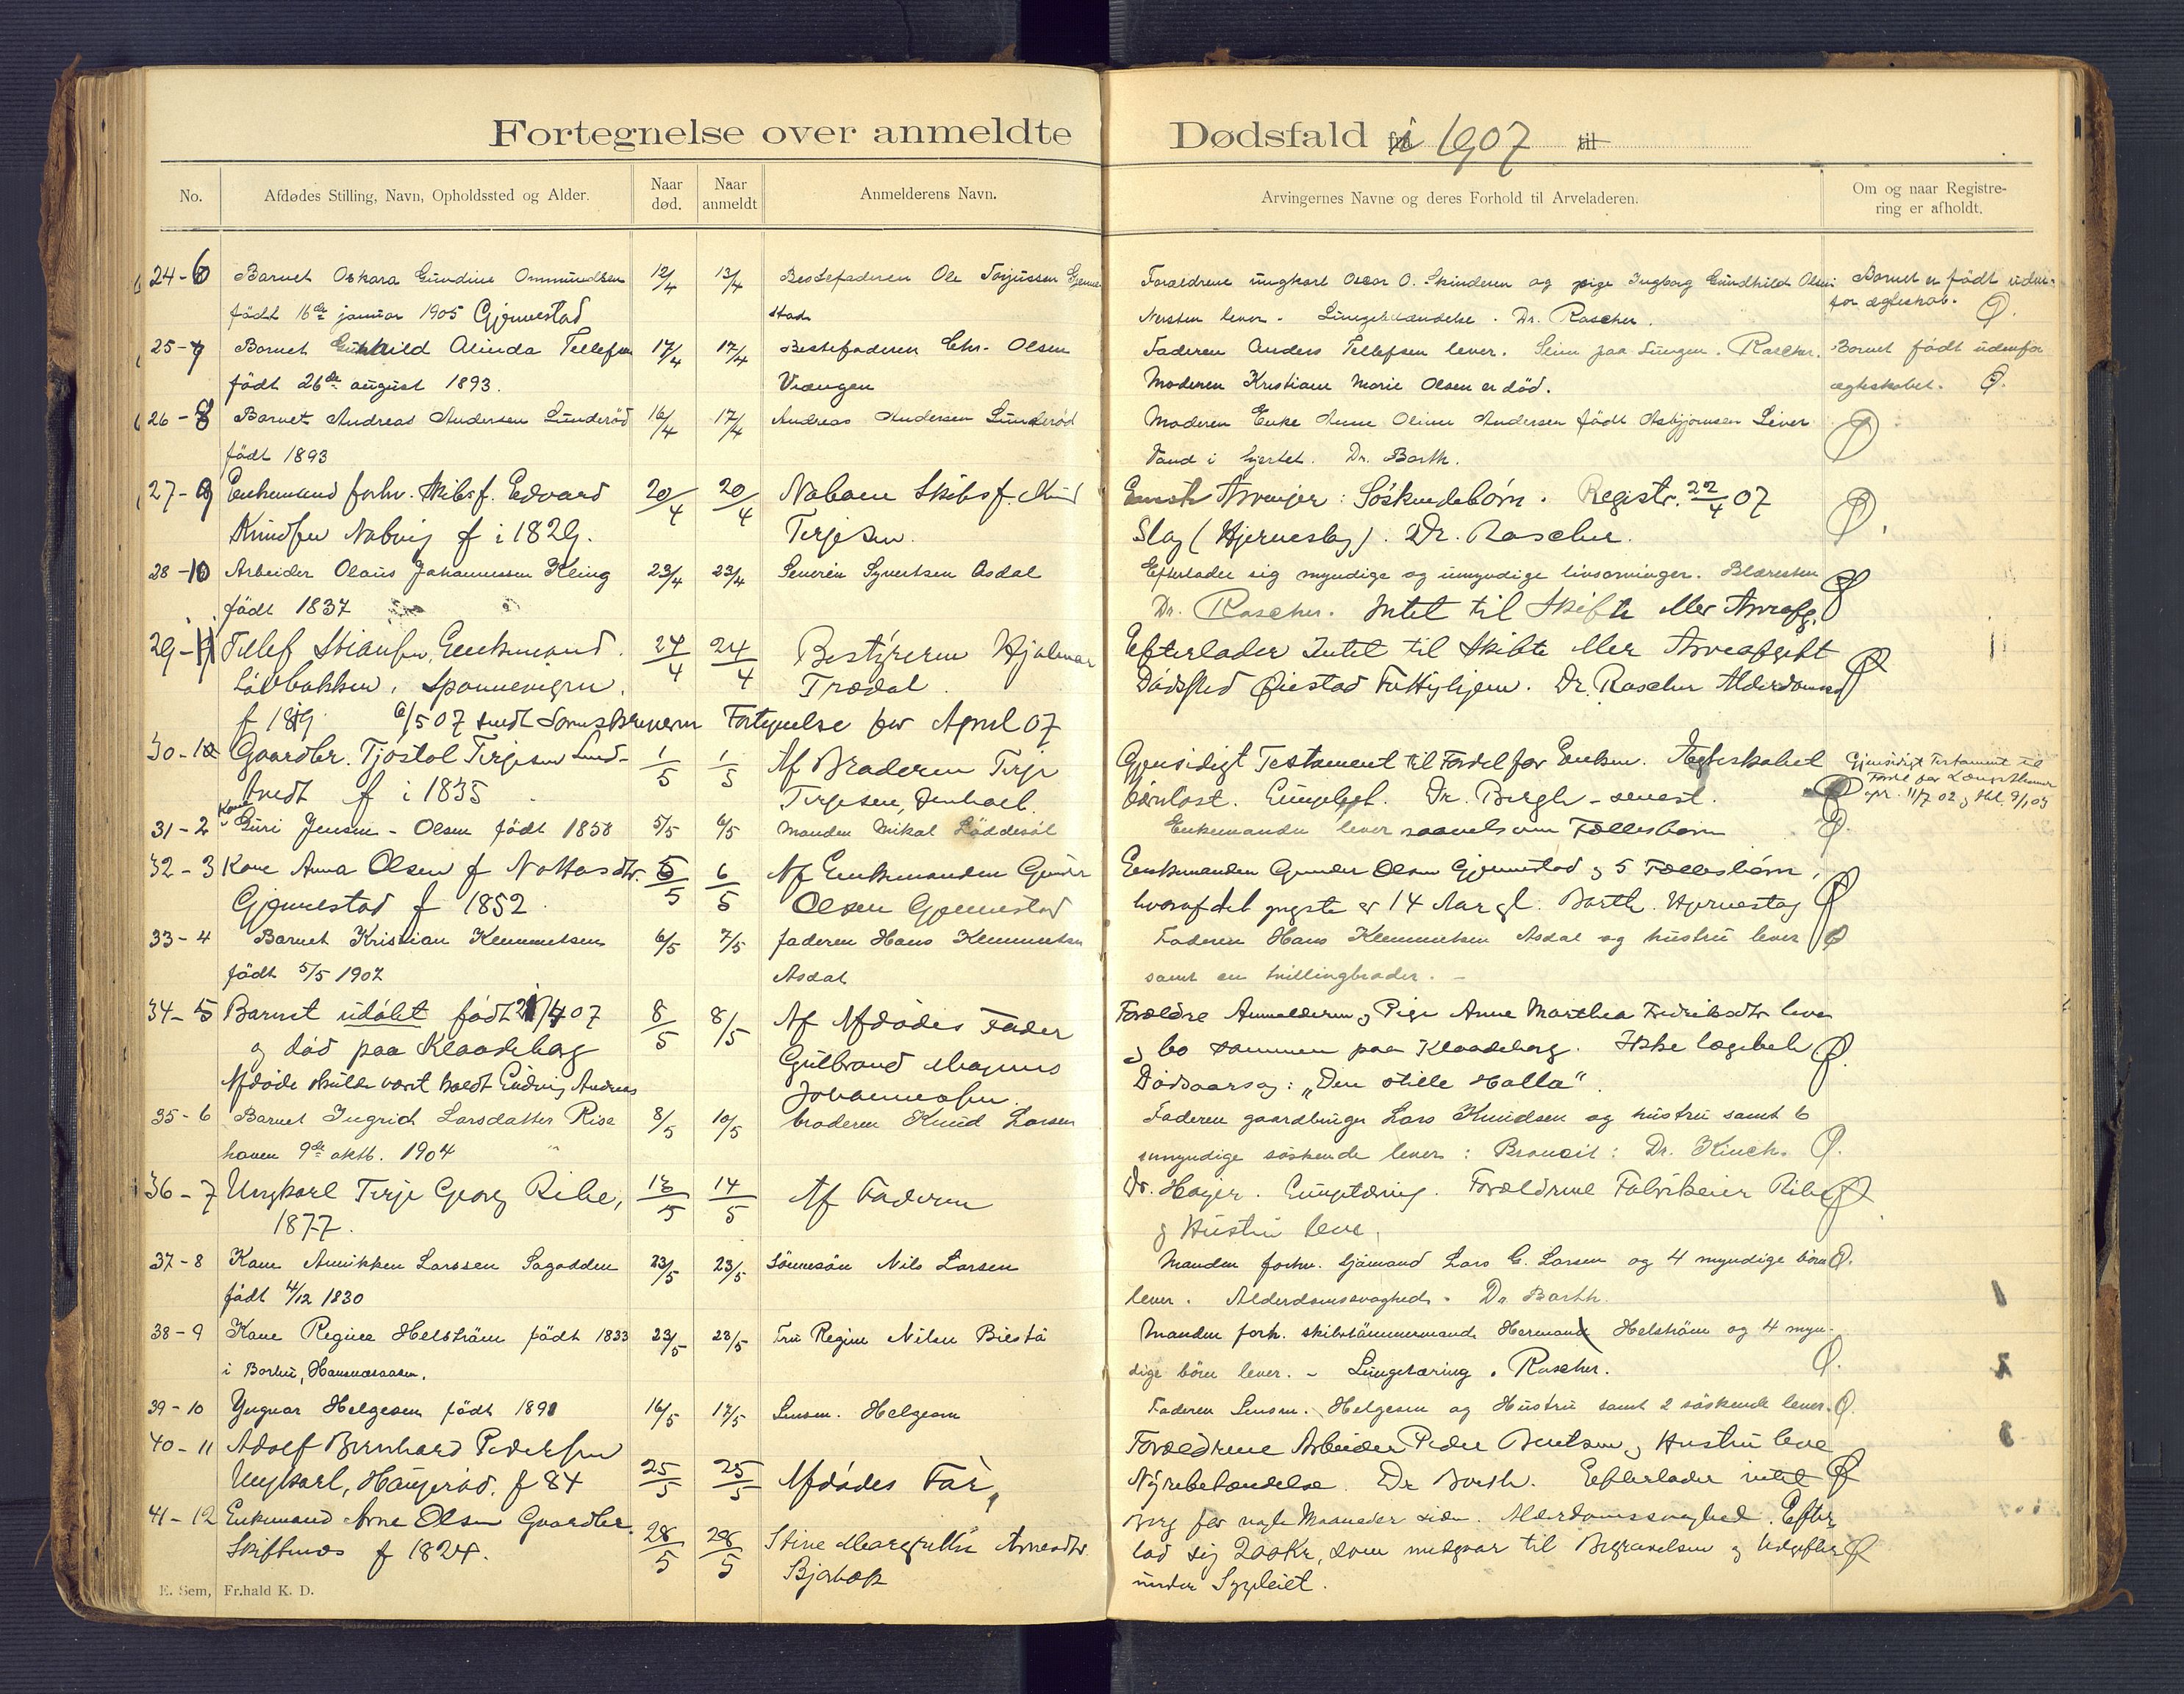 Fortegnelse over anmeldte Dødsfald i 1907 til
No. Afdødes Stilling, Navn, Opholdssted og Alder. Naar død. Naar anmeldt Anmelderens Navn. Arvingernes Navne og deres Forhold til Arveladeren. Om og naar Registrering er afholdt.
24-6 Barnet Oskara Gundine Ommundsen 12/4 13/4 Bestefaderen Ole Torjussen Forældrene ungkarl Oscar O. Skinderen og pige Ingborg Gundhild Olsen Barnet er født uden-
født 16de januar 1905 Gjennestad stad Nersten lever - Lungebetændelse. Dr. Rascher. for ægteskab.
25-7 Barnet Gunhild Alinda Tellefsen 17/4 17/4 Bestefaderen Chr. Olsen Faderen Anders Tellefsen lever. Slim paa Lungen. Rascher. Barnet født udenfor
født 26de august 1893. Vrængen Moderen Kristiane Marie Olsen er død. ægteskabet.
26-8 Barnet Andreas Andersen Lunderød 16/4 17/4 Andreas Andersen Lunderød Moderen Enke Anne Oline Andersen født Asbjørnsen Lever
født 1893 Vand i hjertet. Dr. Barth.
27-9 Enkemand forhv. Skibsf. Edvard 20/4 20/4 Naboen Skibsf. Knud Eneste Arvinger: Söskendebörn. Registr. 22/4 07
Knudsen Nabvig f i 1829. Terjesen. Slag (Hjerneslag). Dr. Rascher.
28-10 Arbeider Olaus Johannessen Kling 23/4 23/4 Severin Syvertsen Asdal Efterlader sig myndige og umyndige livsarvinger. Blæresten
født 1837 Dr. Rascher. Intet til Skifte eller Arveafg.
29-11 Tellef Stiansen, Enkemand. 24/4 24/4 Bestyreren Hjalmar Efterlader Intet til Skifte eller Arveafgift
Lövbakken, Spannevigen. Trædal. Dödssted Øiestad Fattighjem. Dr. Rascher
f 1819. 6/5 07 sendt Sorenskriveren Fortegnelse for April 07
30-1 Gaardbr. Tjöstol Terjesen Lund- 1/5 1/5 Af Broderen Terje Gjensidigt Testament til Fordel for Enken. Ægteskabet Gjensidigt Testament til
tvedt f i 1835 Terjesen, barnløst. Dr. Bergh - senest. Fordel for Længstlevende
31-2 Kone Guri Jensen - Olsen født 1858 5/5 6/5 Manden Mikal Løddesøl Enkemanden lever saavelsom Fællesbørn
32-3 Kone Anna Olsen f 6/5 Af Enkemanden Gunder Enkemanden Gunder Olsen Gjennestad og 5 Fællesbörn,
Gjennestad f 1852. Olsen Gjennestad hvoraf det yngste er 14 Aar gl. Barth. Hjerneslag
33-4 Barnet Kristian Klemmetsen 6/5 7/5 faderen Hans Klemmetsen Faderen Hans Klemmetsen Asdal og hustru lever
født 5/5 1907 Asdal samt en tvillingbroder.
34-5 Barnet udøbt født /4 07 8/5 8/5 Af Afdødes Fader Forældre Anmelderen og Pige Anne Marthea Fredriksdtr leve
og död paa Klaadeborg Gulbrand Magnus og bo sammen paa Klaadeborg. Ikke lægebeh
Afdøde skulde været kaldt Andreas Johannessen. Dødsaarsag: "Den stille Halla".
35-6 Barnet Ingrid Larsdatter Rise 8/5 10/5 broderen Knud Larsen Faderen gaardbruger Lars Knudsen og hustru samt 6
haven 9de oktb. 1904 umyndige söskende lever: Broncit: Dr. Kinch.
36-7 Ungkarl Terje Georg Ribe, 13/5 14/5 Af Faderen Dr. Høyer. Lungetæring. Forældrene Ribe
1877. og Hustru leve.
37-8 Kone Annikken Larssen Sagodden 23/5 23/5 Sönnesön Nils Larsen Manden forhv. sjömand Lars G. Larsen og 4 myndige börn
født 4/12 1830 lever. Alderdomssvaghed. Dr Barth.
38-9 Kone Regine Helström født 1833 23/5 23/5 Fru Regine Nilsen Manden forh. skibstömmermand Herman Helström og 4 myn-
i Borbu, dige börn lever. - Lungetæring. Rascher.
39-10 Yngvar Helgesen født 1891 16/5 17/5 Lensm. Helgesen Faderen Lensm. Helgesen og Hustru samt 2 söskende lever.
40-11 Adolf Bernhard Pedersen Forældrene Arbeider Peder Bentsen og Hustru leve
Ungkarl, Haugeröd. f 84 25/5 25/5 Afdødes Far, Nyrebetændelse. Dr Barth. Efterlader intet
41-12 Enkemand Arne Olsen Gaardbr. 28/5 28/5 Stine Margrethe Arnesdtr. for nogle Maaneder siden. Alderdomssvaghed. Efter
Skiftenes f 1824. Bjorbæk lod sig 200 Kr, som medgaar til Begravelsen og Udgifter
under Sygeleiet.
E. Sem, Fr.hald K. D.